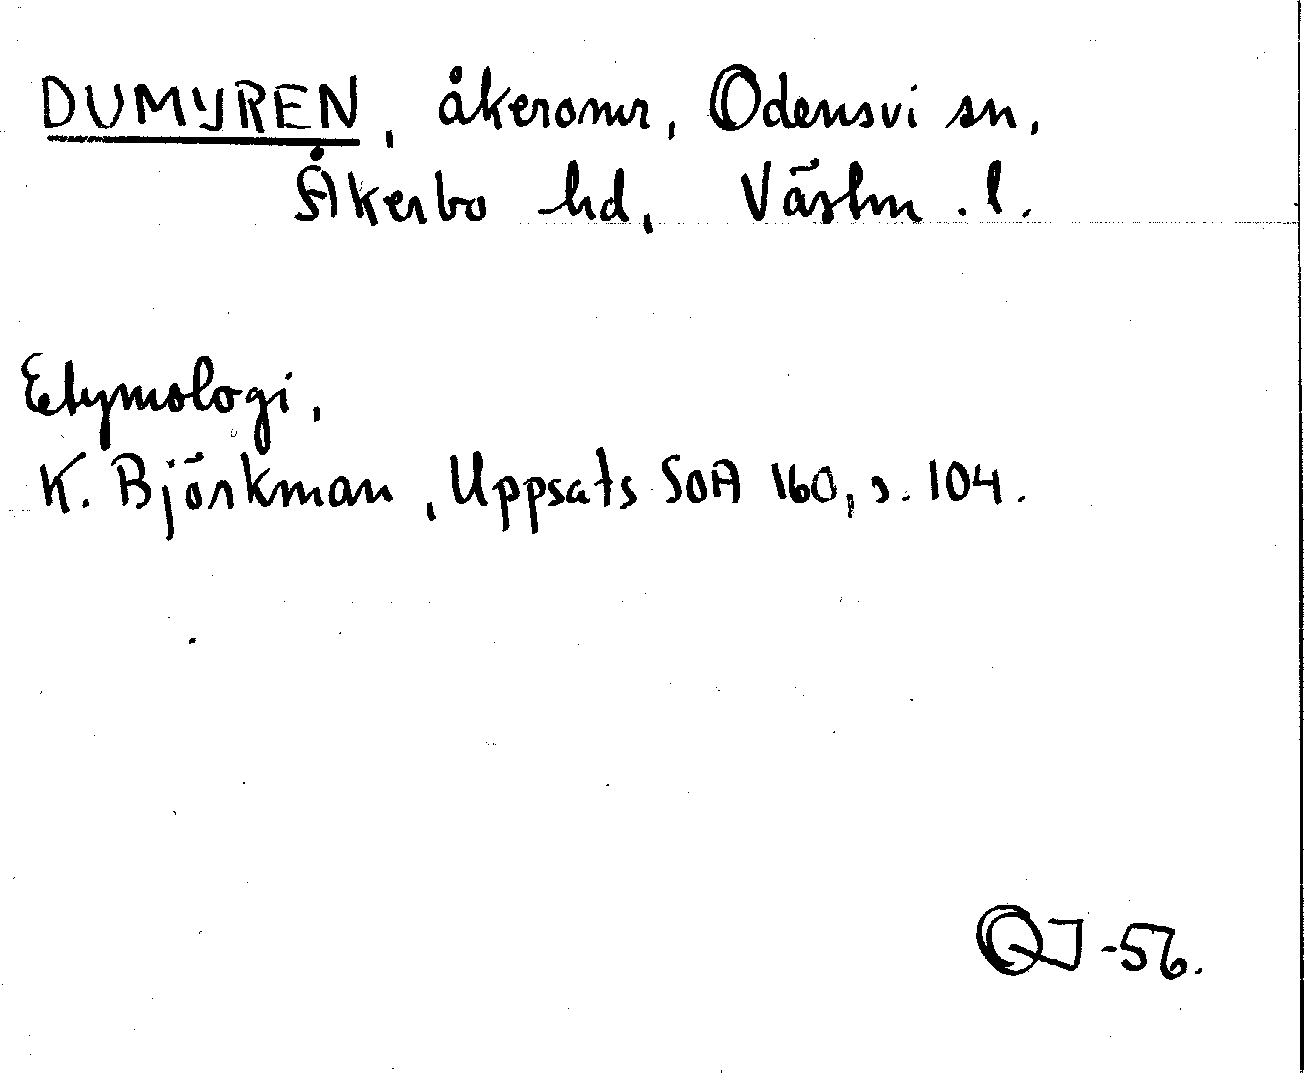 DUMYREN, åkeromr, Odensvi sn,
Åkerbo hd, Västm. l.
Etymologi,
K. Björkman, Uppsats SOA 160, s. 104.
QJ-56.